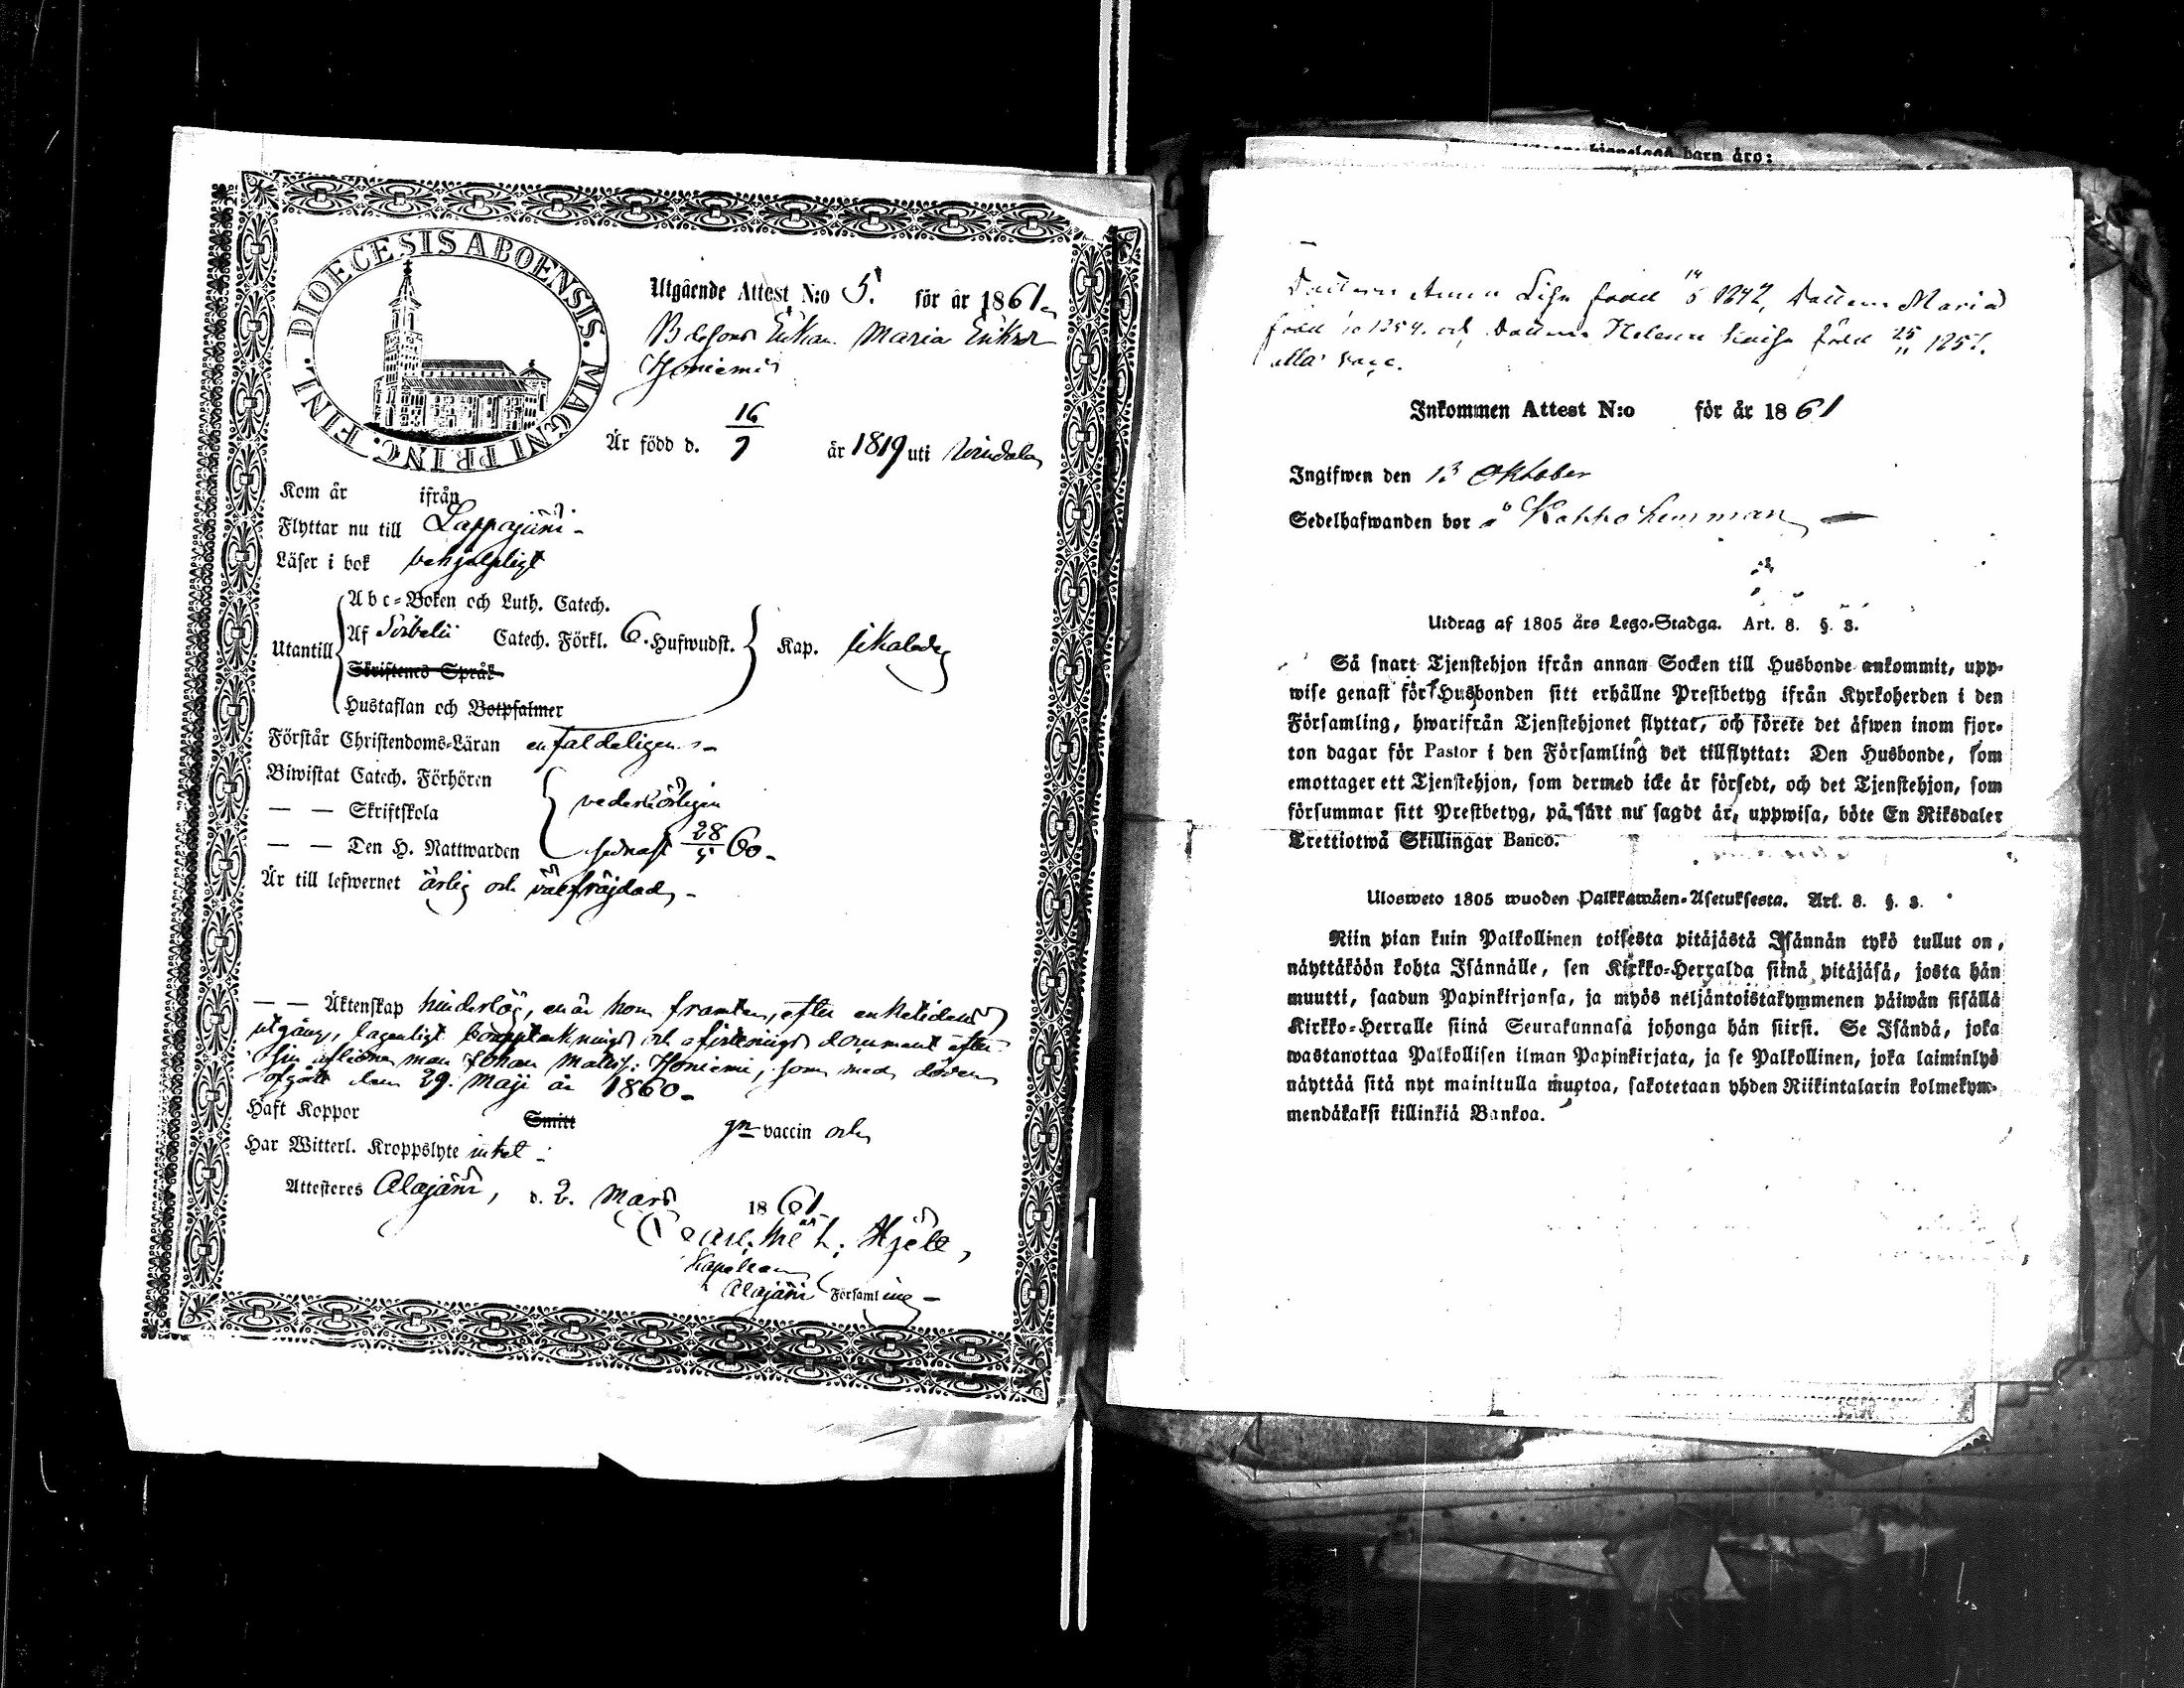 DIOECESIS ABOENSIS. MAGNI PRINC. FINL.
Utgående Attest N:o 5. för år 1861
Bdesons Enkan Maria Eriksdr
Honiemi
Är född d. 16/7 år 1819 uti Vindala
Kom år ifrån
Flyttar nu till Lappajärvi
Läser i bok behjelpligt
Abc-Boken och Luth. Catech.
Utantill Af Svebelii Catech. Förkl. 6. Hufwudst. Kap. likaledes
Skriftenes Språk
Hustaflan och Botpsalmer
Förstår Christendoms-Läran enfaldeligen
Biwistat Catech. Förhören
— — Skriftskola vederbörligen
— — Den H. Nattwarden sednast 28/5 60
Är till lefwernet ärlig och välfräjdad
— — Äktenskap hinderlös, enär hon framter, efter enketidens
utgång, lagenligt boupptecknings och afvittrings document efter
sin aflidne man Johan Matts: Honiemi, som med döden
afgått den 29. Maji år 1860
Haft Koppor Smitt gn vaccin och
Har Witterl. Kroppslyte intet
Attesteres Alajärvi, d. 2. Mars 1861
Hjelt,
Kapellan
Alajärvi Församling
barn äro:
Dottern Anna Lisa född 14/5 1847, Dottern Maria
född 1854. och Dottern Helena Kaisa född 25/11 1857.
alla vacc.
Inkommen Attest N:o för år 1861
Ingifwen den 13 Oktober
Sedelhafwanden bor å Kokko hemman
Utdrag af 1805 års Lego-Stadga. Art. 8. §. 3.
Så snart Tjenstehjon ifrån annan Socken till Husbonde ankommit, upp-
wise genast för Husbonden sitt erhållne Prestbetyg ifrån Kyrkoherden i den
Församling, hwarifrån Tjenstehjonet flyttat, och förete det äfwen inom fjor-
ton dagar för Pastor i den Församling det tillflyttat: Den Husbonde, som
emottager ett Tjenstehjon, som dermed icke är försedt, och det Tjenstehjon, som
försummar sitt Prestbetyg, på sätt nu sagdt är, uppwisa, böte En Riksdaler
Trettiotwå Skillingar Banco.
Ulosweto 1805 wuoden Palkkawäen-Asetuksesta. Art. 8. §. 3.
Niin pian kuin Palkollinen toisesta pitäjästä Isännän tykö tullut on,
näyttäköön kohta Isännälle, sen Kirkko-Herralda siinä pitäjäsä, josta hän
muutti, saadun Papinkirjansa, ja myös neljäntoistakymmenen päiwän sisällä
Kirkko-Herralle siinä Seurakunnasa johonga hän siirsi. Se Isändä, joka
wastanottaa Palkollisen ilman Papinkirjata, ja se Palkollinen, joka laiminlyö
näyttää sitä nyt mainitulla muotoa, sakotetaan yhden Riikintalarin kolmekym-
mendäkaksi killinkiä Bankoa.